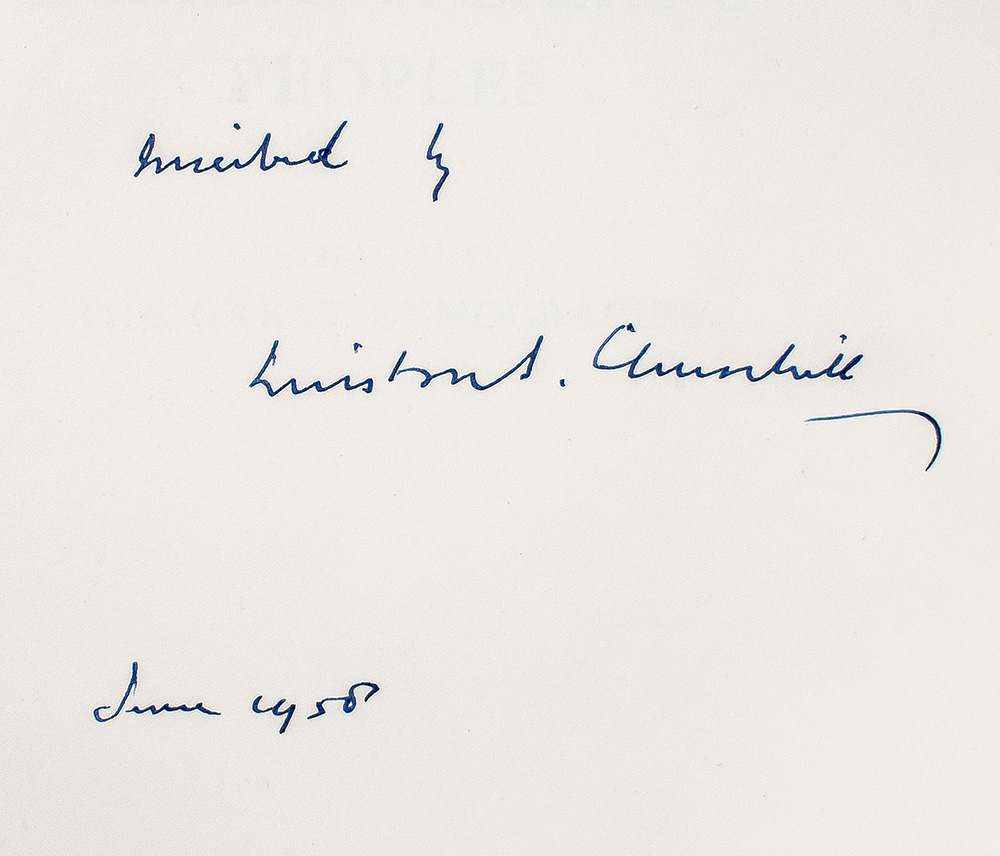 Inscribed by
Winston S. Churchill
June 1958